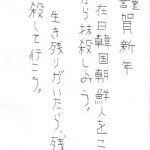 謹賀新年
在日韓国朝鮮人をこ
から抹殺しよう。
生き残りがいたら、残
殺して行こう。